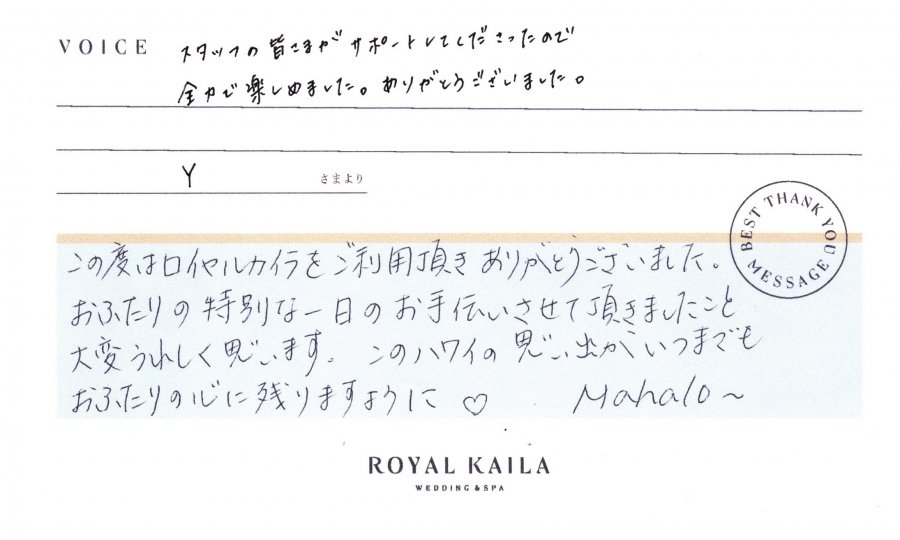 VOICE
スタッフの皆さまがサポートしてくださったので
全力で楽しめました。ありがとうございました。
Y さまより
BEST THANK YOU MESSAGE
この度はロイヤルカイラをご利用頂きありがとうございました。
おふたりの特別な一日のお手伝いさせて頂きましたこと
大変うれしく思います。このハワイの思い出がいつまでも
おふたりの心に残りますように♡ Mahalo~
ROYAL KAILA
WEDDING & SPA